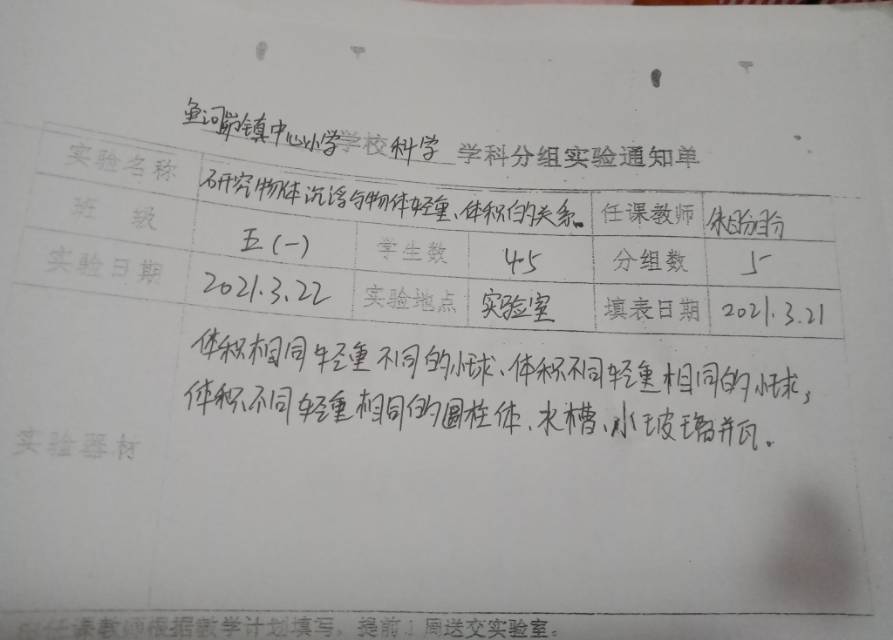 鱼河峁镇中心小学学校科学 学科分组实验通知单
实验名称 研究物体沉浮与物体轻重、体积的关系。 任课教师
班 级 五(一) 学生数 45 分组数 5
实验日期 2021.3.22 实验地点 实验室 填表日期 2021.3.21
体积相同轻重不同的小球、体积不同轻重相同的小球,
体积不同轻重相同的圆柱体、水槽、小玻璃瓶。
实验器材
任课教师根据教学计划填写，提前1周送交实验室。